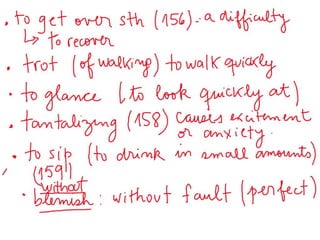 . to get over sth (156).- a difficulty
↳ to recover
. trot (of walking) to walk quickly
. to glance (to look quickly at)
. tantalizing (158) causes excitement
or anxiety.
. to sip (to drink in small amounts)
(159)
without
. blemish : without fault (perfect)